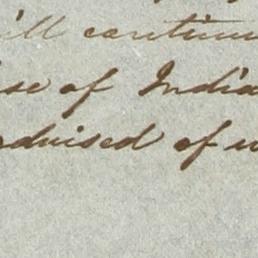 ill continu
se of India
advised of